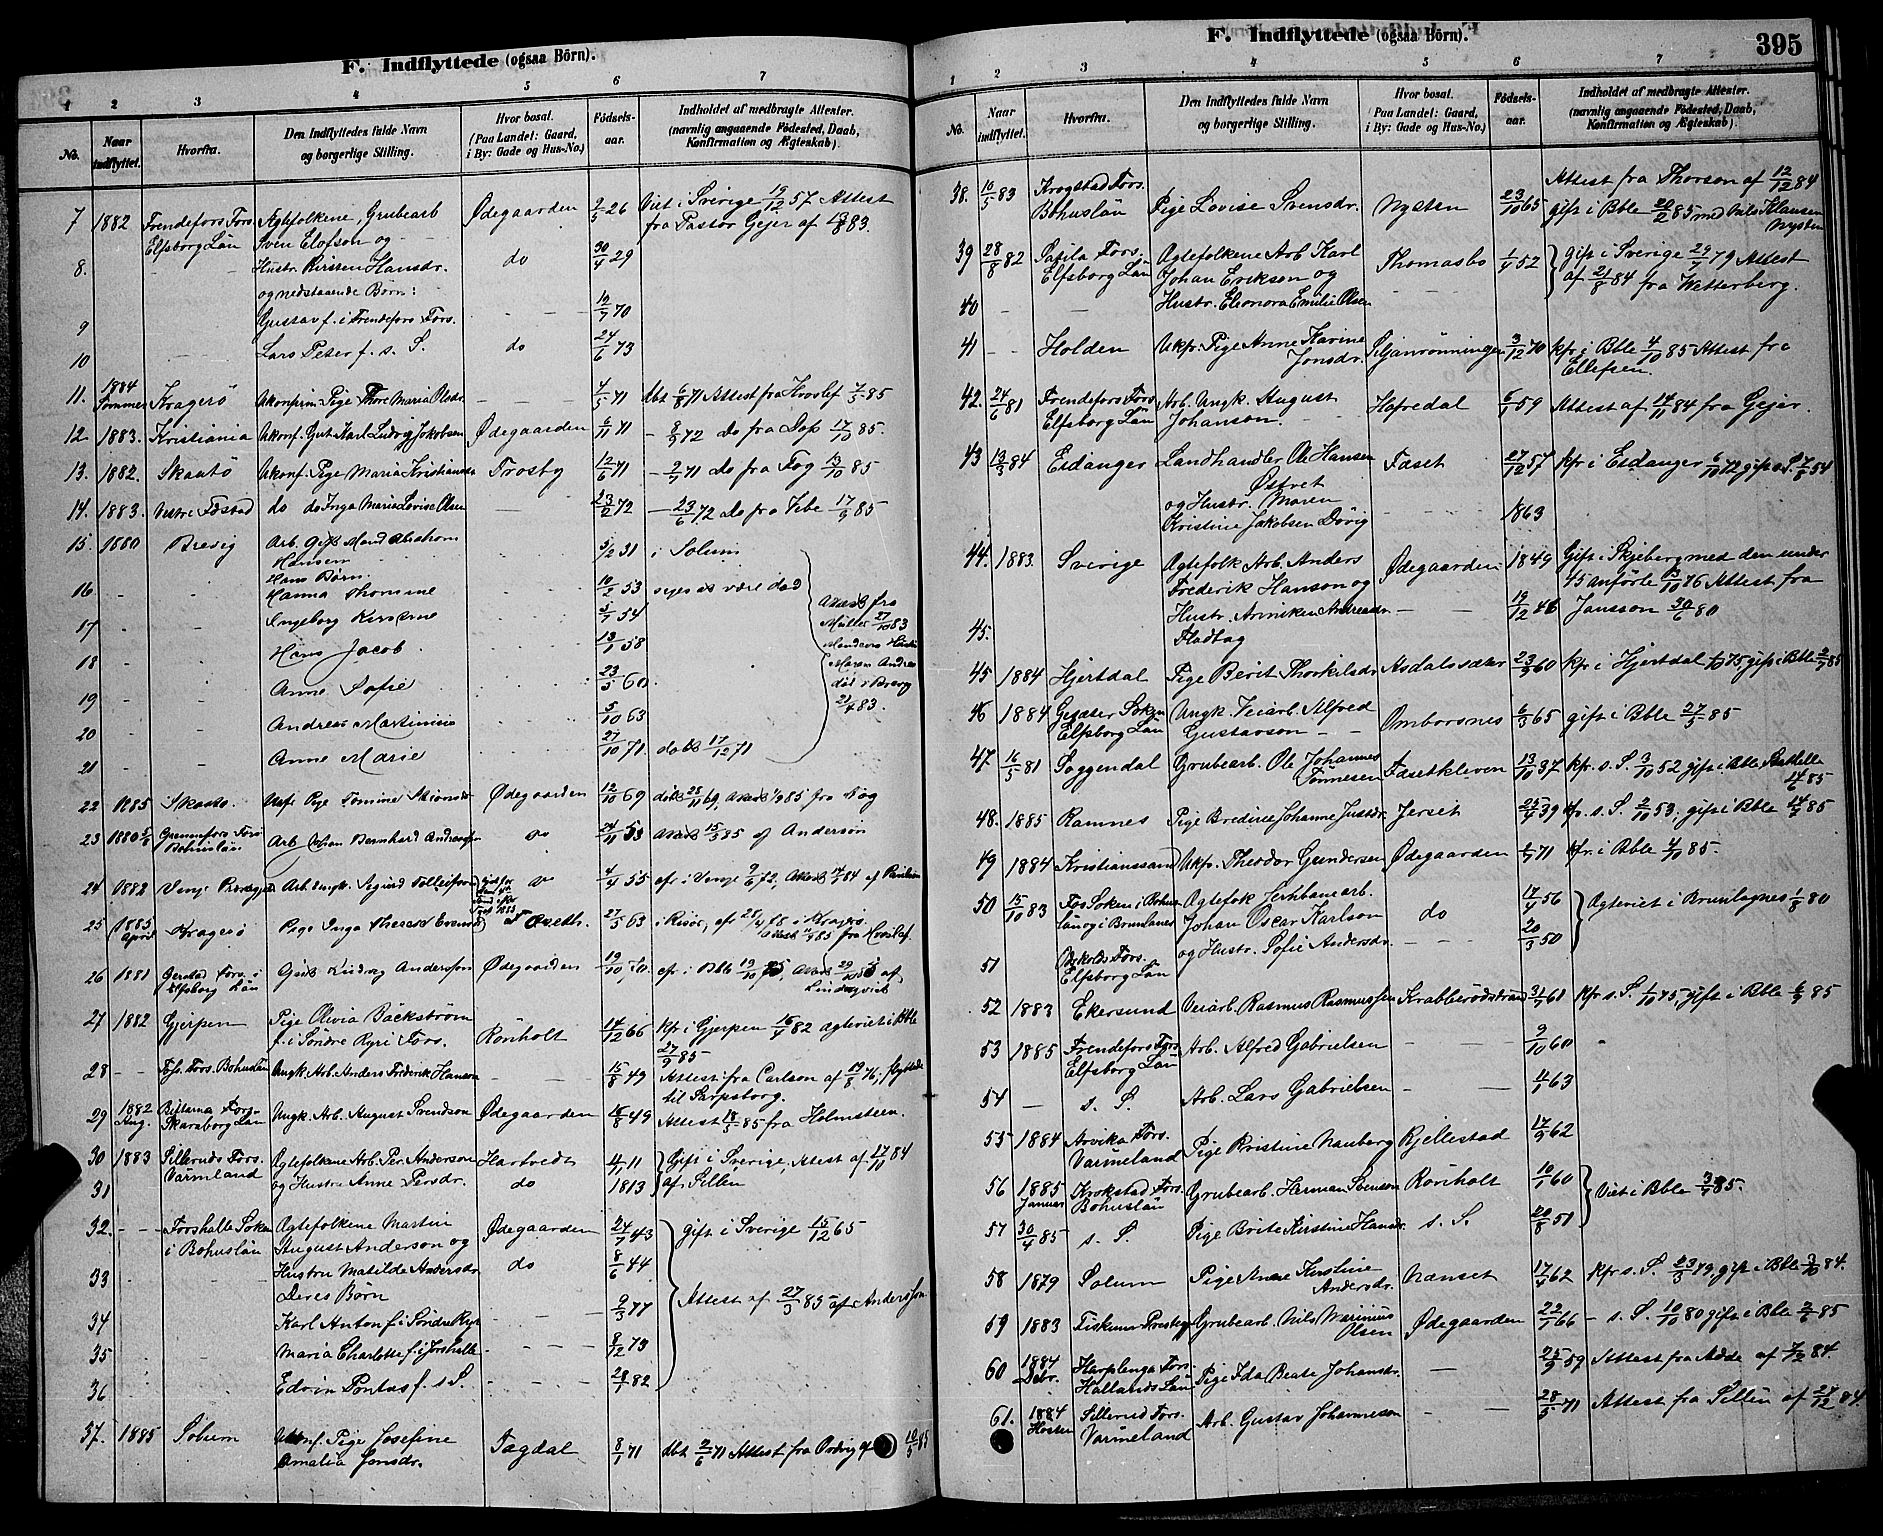 F. Indflyttede (ogsaa Börn).
1 2 3 4 5 6 7
No. Naar indflyttet. Hvorfra. Den Indflyttedes fulde Navn og borgerlige Stilling. Hvor bosat. (Paa Landet: Gaard, i By: Gade og Hus-No.) Fødsels-aar. Indholdet af medbragte Attester. (navnlig angaaende Fødested, Daab, Konfirmation og Ægteskab).
7 1882 Frendefors Fors. Ægtefolkene, Grubearb Ødegaarden 2/5 26 Viet i Sverige 19/12 57 Attest
Elfsborg Län Sven Elofson og fra Pastor Gejer af 83.
8. Hustr. Kirsten Hansdr. do 30/4 29
og nedstaaende Børn:
9 Gustav f. i Frendefors Fors. 19/7 70
10 Lars Peter f. s. S. do 24/6 73
11. 1884 Sommer Kragerö Ukonfirm. Pige Thore Maria Olsdr. 4/5 71 dbt 6/8 71 Attest fra Hovlef 85
12 1883. Kristiania Ukonf. Gut Karl Ludvig Jakobsen Ødegaarden 6/11 71 72 Do fra Dop 17/10 85.
13. 1882. Skaatö Ukonf. Pige Maria Kristiansen Trosby 12/6 71 - 2/7 71 do fra Fog 13/10 85
14. 1883. Vestre do do Inga Marie Lovise Olsen 23/2 72 - 23/6 72 Do fra Vibe 17/9 85
15. 1880 Brevig Arb. Gift Mand Abraham 3/2 31 i Solum
Hansen
Hans Börn:
16 Hanna Thomine 10/2 53 siges at være död
17 Ingeborg Kirstine 5/7 54 Attest fra
Müller 27/10 83
18 Hans Jacob 13/1 58 Mandens Hustru
Maren Andrea
19 Anne Sofie 23/5 60. död i Brevig
83.
20 Andreas Martinius 5/10 63
21 Anne Marie 27/10 71. döbt 17/12 71
22 1885 Skaatö. Ukf. Pige Tomine Ødegaarden 12/10 69 döbt 25/11 69, Attest 85 fra Fog
23 1880 Fors Arb Johan Bernhard Andersson do 24/11 53 Attest 15/3 85 af Anderson
Bohuslän
24 1882 Arb. Ungk. Sigurd Tollefsen do 4/4 55 cf. i 72, Attest 84 af
25 1885 April Kragerö Pige Inga Therese 27/5 63 i Risör, cf 85 i Kragerö.
Attest 85 fra Hovlef.
26 1881 Fors. i Gut Ludvig Andersson Ødegaarden 19/10 70. cf. i Bble 19/10 85, Attest 29/10 85 af
Elfsborg Län Lindeqvist
27 1882 Gjerpen Pige Olivia Bäckström Rönholt 14/12 66 kfr i Gjerpen 82 Ægteviet i Bble
f. i Söndre Ryri Fors. 27/9 85
28 Fors. Bohuslän Ungk. Arb. Anders Frederik Hanson 15/8 49 Attest fra Carlson af 19/8 76, flyttede
til Sarpsborg.
29 1882 Aug. Fors. Ungk. Arb. August Svendson Ødegaarden 49 Attest 18/3 85 fra Holmsteen.
Skaraborg Län
30 1883 Silleruds Fors. Ægtefolkene Arb. Per Anderson Hartvedt 11 Gift i Sverige, Attest af 17/11 84
Värmland
31 og Hustru Anne Persdr. do 1813 af Sillén
32. Forshalla Soken Ægtefolkene Martin Ødegaarden 24/7 43 gift i Sverige 15/12 65
i Bohuslän August Anderson og
33 Hustru Matilde Andersdr. do 8/6 44
Deres Börn
34 Karl Anton f. i Söndre Ryr 9/3 77 Attest af 27/3 85 af Andersson
35 Maria Charlotte f. i Forshalla 8/12 79
36 Edvin Pontus f. s S. 28/1 82
37. 1885 Solum Ukonf. Pige Josefine Tagdal 8/1 71 dbt 2/6 71 Attest fra Ording af 10/3 85
Amalia Jonsdr.
F. Indflyttede (ogsaa Börn). 395
1 2 3 4 5 6 7
No. Naar indflyttet. Hvorfra. Den Indflyttedes fulde Navn og borgerlige Stilling. Hvor bosat. (Paa Landet: Gaard, i By: Gade og Hus-No.) Fødsels-aar. Indholdet af medbragte Attester. (navnlig angaaende Fødested, Daab, Konfirmation og Ægteskab).
38. 10/5 83 Krogstad Fors. Attest fra Thorson af 12/12 84
Bohuslän Pige Lovise Svensdr. Nysten 23/10 65 gift i Bble 85 med Nils Klausen
Nysten
39 28/8 82 Satila Fors. Ægtefolkene Arb. Karl Thomasbo 1/4 52 Gift i Sverige 29/7 79 Attest
Elfsborg Län Johan Erikson og af 21/8 84 fra Wetterberg.
40 Hustr. Eleonora Emilie Olsen
41 Holden Ukfr. Pige Anne Karine Siljanrönningen 3/12 70 kfr. i Bble 4/10 85 Attest fra
Jonsdr. Ellefsen.
42. 24/6 81 Frendefors Fors Arb. Ungk. August Hofredal 6/1 59 Attest af 14/11 84 fra Gejer.
Elfsborg Län Johanson.
43 13/3 84 Eidanger Landhandler Ole Hansen Fæset 27/12 57 kfr i Eidanger 6/10 72 gift s. S. 54
Østvet
og Hustr. Maren
Kristine Jakobsen Dövig 1863
44. 1883. Sverige Ægtefolk Arb. Anders Ødegaarden 1849 Gift i Skjeberg med den under
Frederik Hanson og 45 anförte 76 Attest fra
Hustr. Anniken Andreasdr. 19/12 46 Jansson 30/6 80
45. Fladtag
45 1884 Hjertdal Pige Berit Thorkilsdr Asdalsæter 23/9 60 kfr i Hjertdal 75 gift i Bble 85
46 1884 Soken Ungk. Veiarb. Alfred Omborsnes 6/3 65 gift i Bble 27/3 85
Elfsborg Län Gustavson
47 16/5 81 Soggendal Grubearb. Ole Johannes Fæsetkleven 13/10 37 kfr. s. S. 3/10 52 gift i Bble
Tönnesen 14/6 85
48. 1885 Ramnes Pige Bredine Johanne Jerset 25/4 39 kfr. s. S. 2/10 53. gift i Bble 14/6 85
49 1884 Kristianssand Ukfr. Theodor Gundersen Ødegaarden 71 kfr. i Bble 4/10 85.
50 15/10 83 Fos Soken i Bohus Ægtefolk Jernbanearb. 17/4 56 Ægteviet i Brunlagnes 1/8 80
län og i Brunlanes Johan Oscar Karlson do
51 Fors. og Hustr. Sofie Andersdr. 20/3 50
Elfsborg Län
52 1883 Ekersund Veiarb. Rasmus Rasmussen Krabberödstrand 31/7 61 kfr s. S. 1/10 75, gift i Bble 6/9 85
53 1885 Frendefors Fors. Arb. Alfred Gabrielsen 9/10 60
Elfsborg Län
54 s. S. Arb. Lars Gabrielsen 4/1 63
55 1884 Arvika Fors. Pige Kristine Nauberg Kjellestad 17/9 62
Varmeland
56 1885 Januar Krokstad Fors. Grubearb. Herman Svenson Rönholt 10/1 60 Viet i Bble 85.
Bohuslän
57 30/4 85 s. S. Pige Brite Kirstine Hansdr. s. S. 20/8 51
58 1879 Solum Pige Anne Kirstine Nanset 17/4 62 kfr s. S. 23/3 79 gift i Bble 84.
Andersdr.
59 1883 Fiskum Grubearb. Nils Marinius Ødegaarden 22/1 66 - s. S. 10/10 80 gift i Bble 85
Olsen
60 1884 Debr. Harplinge Fors. Pige Ida Beate Johansdr. 25/9 59 Attest fra Adde af 84.
Hallands Län
61. 1884 Hösten Sillerud Fors. Arb. Gustav Johanneson 28/5 71 Attest fra Sillén af 84.
Varmeland